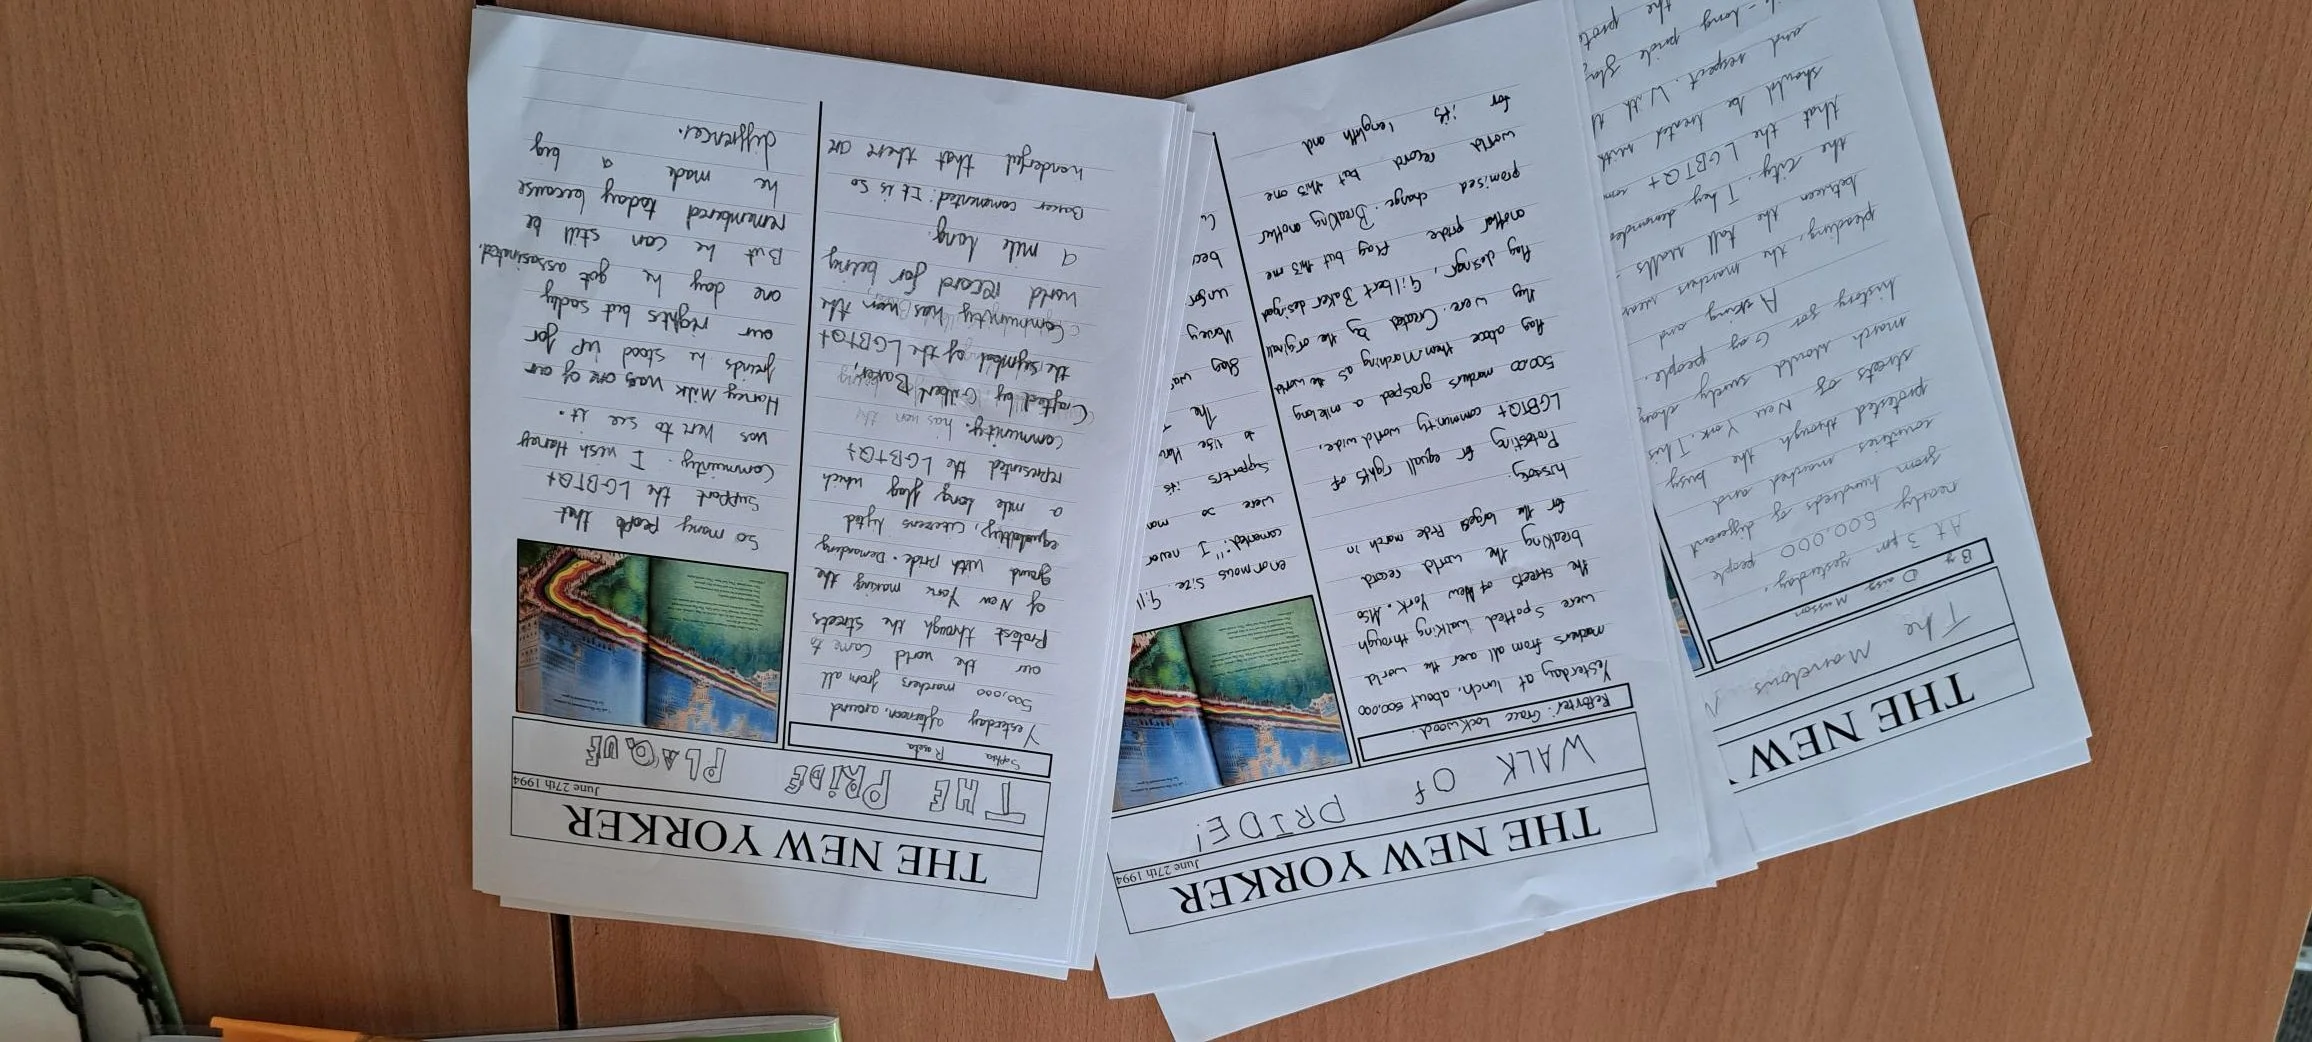 THE NEW YORKER
June 27th 1994
THE PRIDE PLAQUE
Sophia
Yesterday afternoon, around
500,000 marchers from all
our the world came to
Protest through the streets
of New York making the
grand with pride. Demanding
a mile long flag which
represented the LGBTQ+
Community. has won the
Crafted by Gilbert Baker,
the symbol of the LGBTQ+
Community has won the
world record for being
a mile long.
Baker commented: It is so
wonderful that there are
so many people that
support the LGBTQ+
Community. I wish Harvey
was here to see it.
Harvey Milk was one of our
freinds he stood up for
our rights but sadly
one day he got assasinated.
But he can still be
remembered today because
he made a big
difference.
THE NEW YORKER
June 27th 1994
WALK Of PRIDE!
Reporter: Grace Lockwood.
Yesterday at lunch, about 500,000
marchers from all over the world
were spotted walking through
the streets of New York. Also
breaking the world record
for the largest Pride march in
history.
Protesting for equall rights of
LGBTQ+ community world wide.
50000 marchers grasped a mile long
flag above them Marching as the world
they were. Created by the orginall
flag desingr, Gilbert Baker desinged
another pride flag but this one
promised change. Breaking another
world record but this one
for its lenghth and
enormous size.
comented: "I never
were so
supporters its
to rise
The
flag wa
Harvey
unfor
bec
THE NEW
The Marvelous
By Daisy Musson
At 3 pm yesterday,
nearly 500,000 people
from hundreds of different
countries marched and
protested through the busy
streets of New York. This
march would surely chang
history for Gay people.
Asking and
pleading, the marchers
between the tall walls
the city. They demanded
that the LGBTQ+ com
should be treated with
and respect. With
long pride fla
the prote